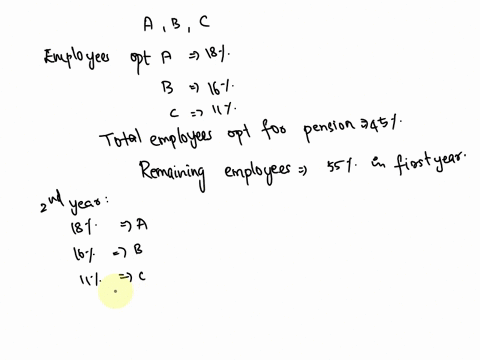 A, B, C
Employees opt A => 18%.
B => 16%
C => 11%
Total employees opt for pension => 45%.
Remaining employees => 55% in first year.
2nd year:
18% => A
16% => B
11% => C